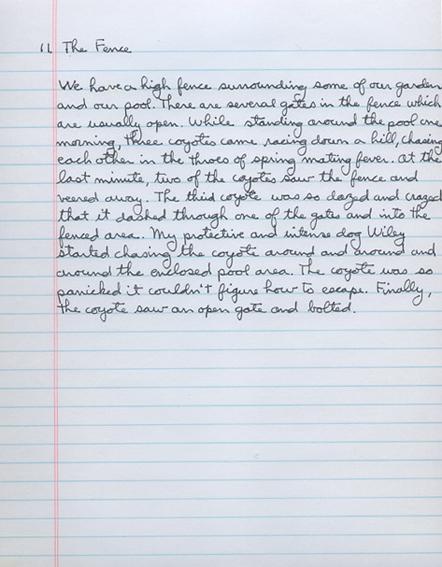 11. The Fence
We have a high fence surrounding some of our garden
and our pool. There are several gates in the fence which
are usually open. While standing around the pool one
morning, three coyotes came racing down a hill, chasing
each other in the throes of spring mating fever. At the
last minute, two of the coyotes saw the fence and
veered away. The third coyote was so dazed and crazed
that it dashed through one of the gates and into the
fenced area. My protective and intense dog Wiley
started chasing the coyote around and around and
around the enclosed pool area. The coyote was so
panicked it couldn't figure how to escape. Finally,
the coyote saw an open gate and bolted.